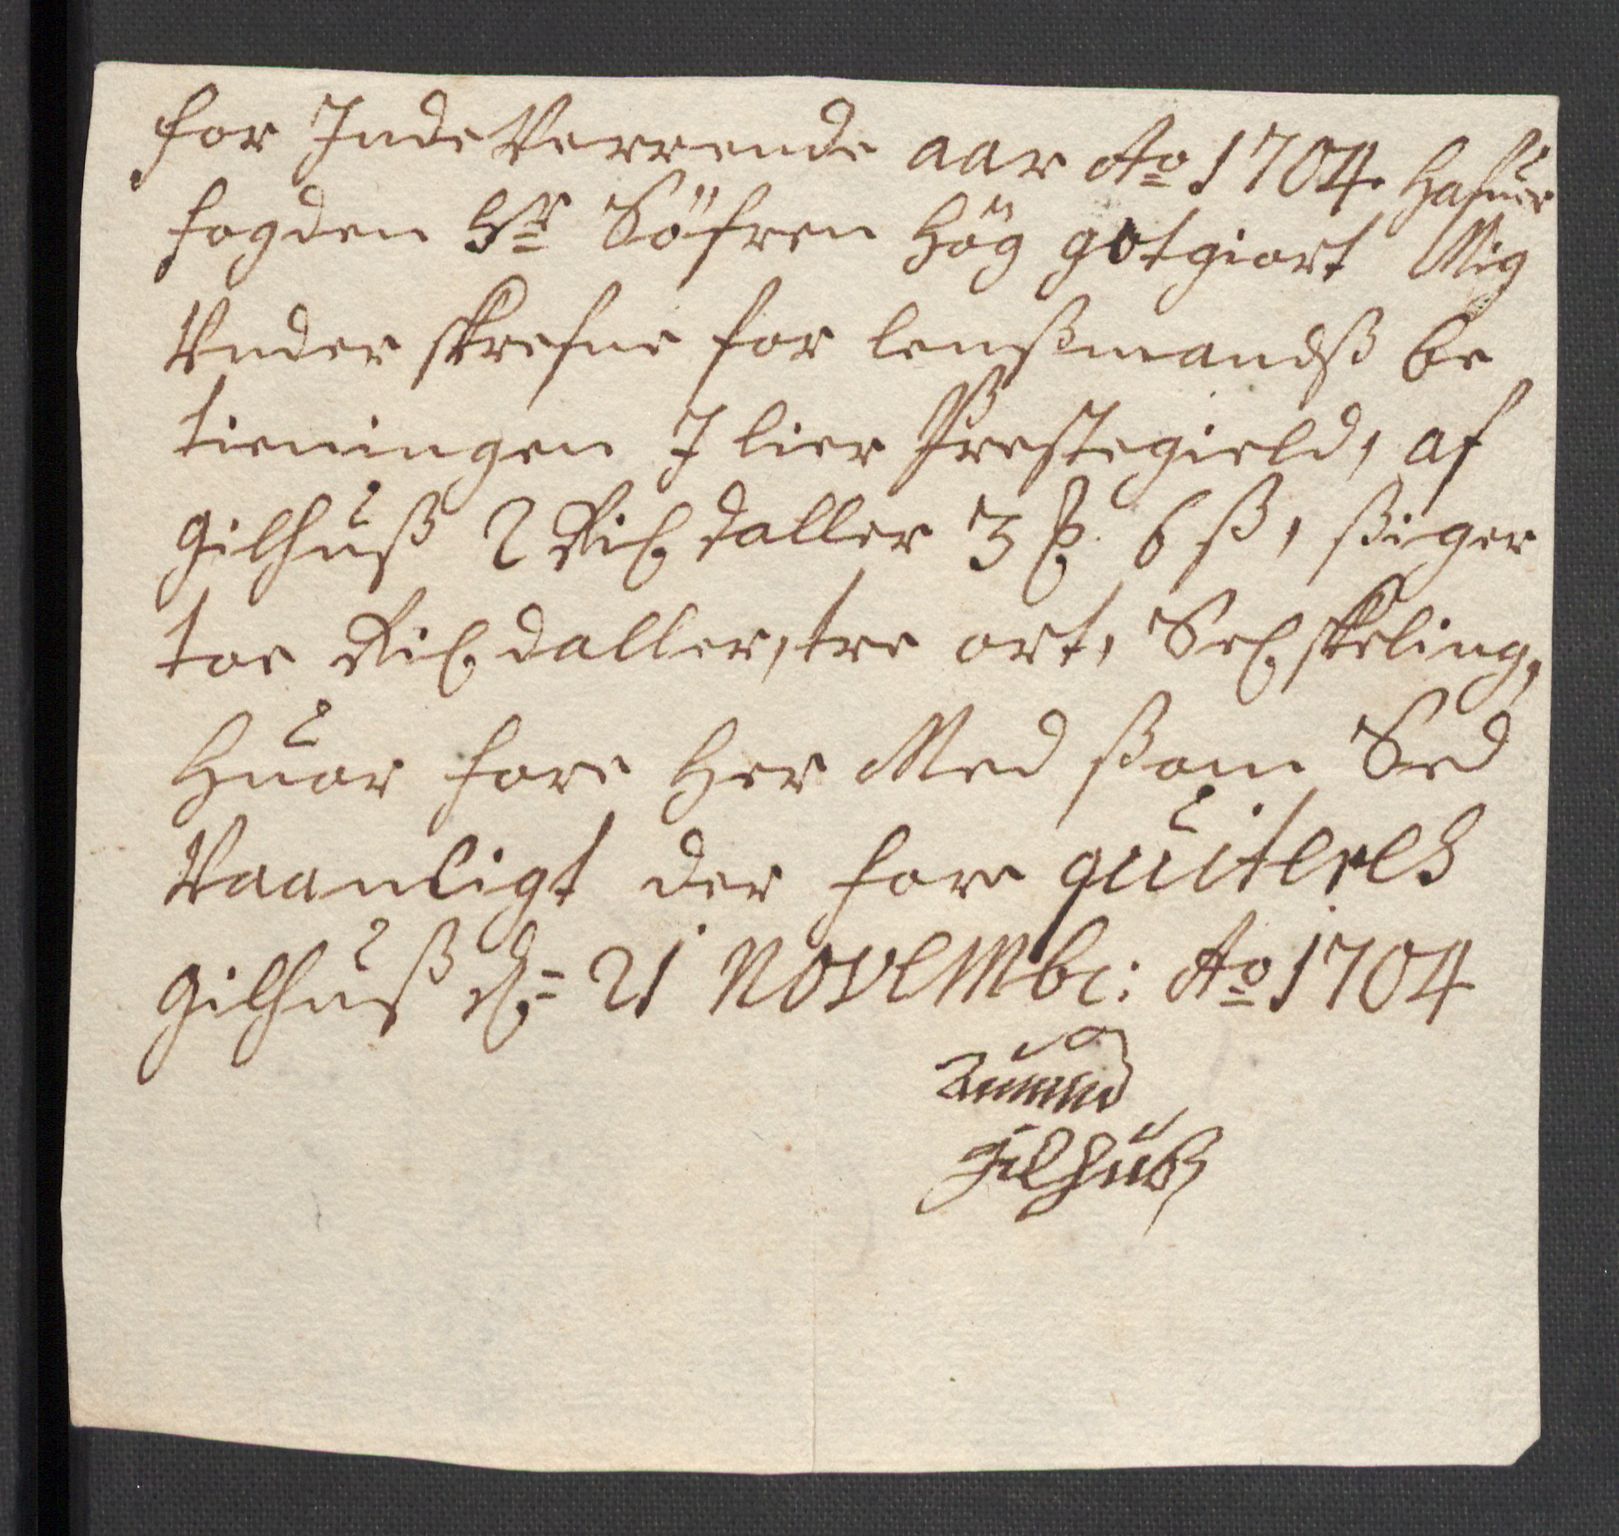 for Inde Verrende aar Ao 1704 hafuer
fogden Sr Söfren Hög gotgiort Mig
Vnder skrefne for lenßmandß be
tieningen J lier Prestegield, af
gilhuß 2 Rix daller 3 6 ß, ßiger
toe Rix daller, tre ort, Sex skeling,
Huor fore her Med ßom Sed
Vaanligt der fore quiteres
gilhuß d= 21 Novembr: Ao 1704
gilhuß